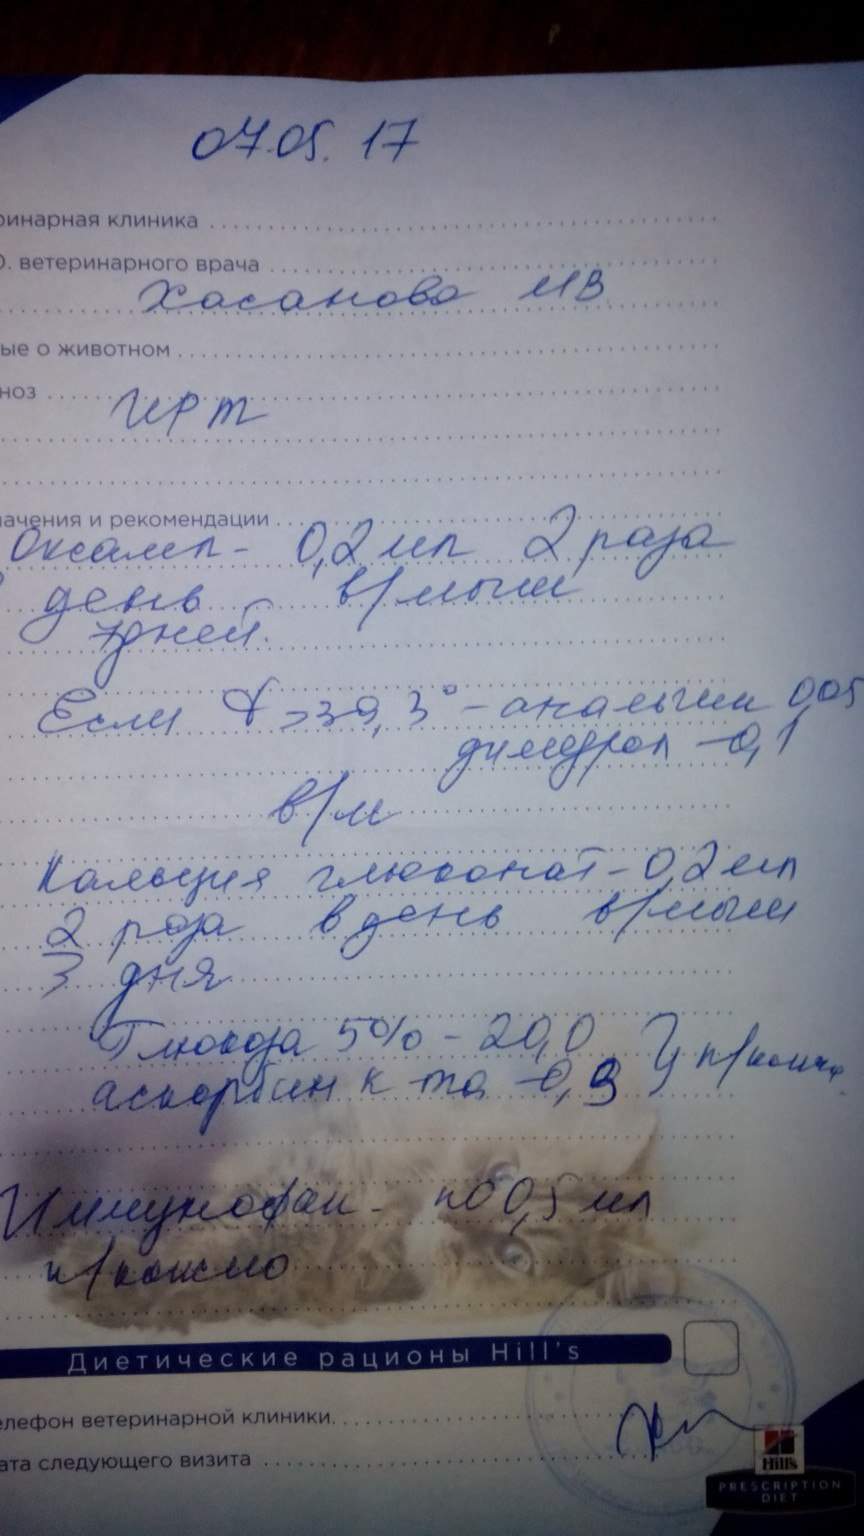 07.05. 17
ринарная клиника
О. ветеринарного врача
Хасанова МВ
ые о животном
ноз
ИРТ
начения и рекомендации
Оксамп - 0,2 мл 2 раза
день в/мыш
7 дней
Если t > 39,3° - анальгин 0,05
димедрол - 0,1
в/м
Кальция глюконат - 0,2 мл
2 раза в день в/мыш
3 дня
Глюкоза 5% - 20,0
аскорбин к-та - 0,3 } п/кожно
Иммунофан - по 0,5 мл
п/кожно
Диетические рационы Hill's
елефон ветеринарной клиники
ата следующего визита
Hill's
PRESCRIPTION
DIET